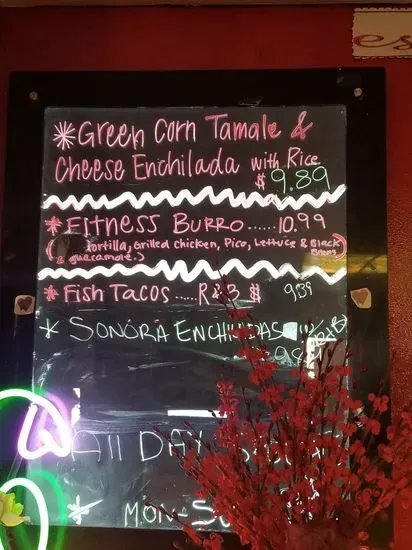 es
*Green Corn Tamale &
Cheese Enchilada with Rice
$9.89
* Fitness Burro......10.99
( Tortilla, Grilled Chicken, Pico, Lettuce & Black Beans
& guacamole.)
* Fish Tacos.....R&B $ 9.39
* SONORA ENCHILADAS W/ R&B
All DAY
* MON-SU